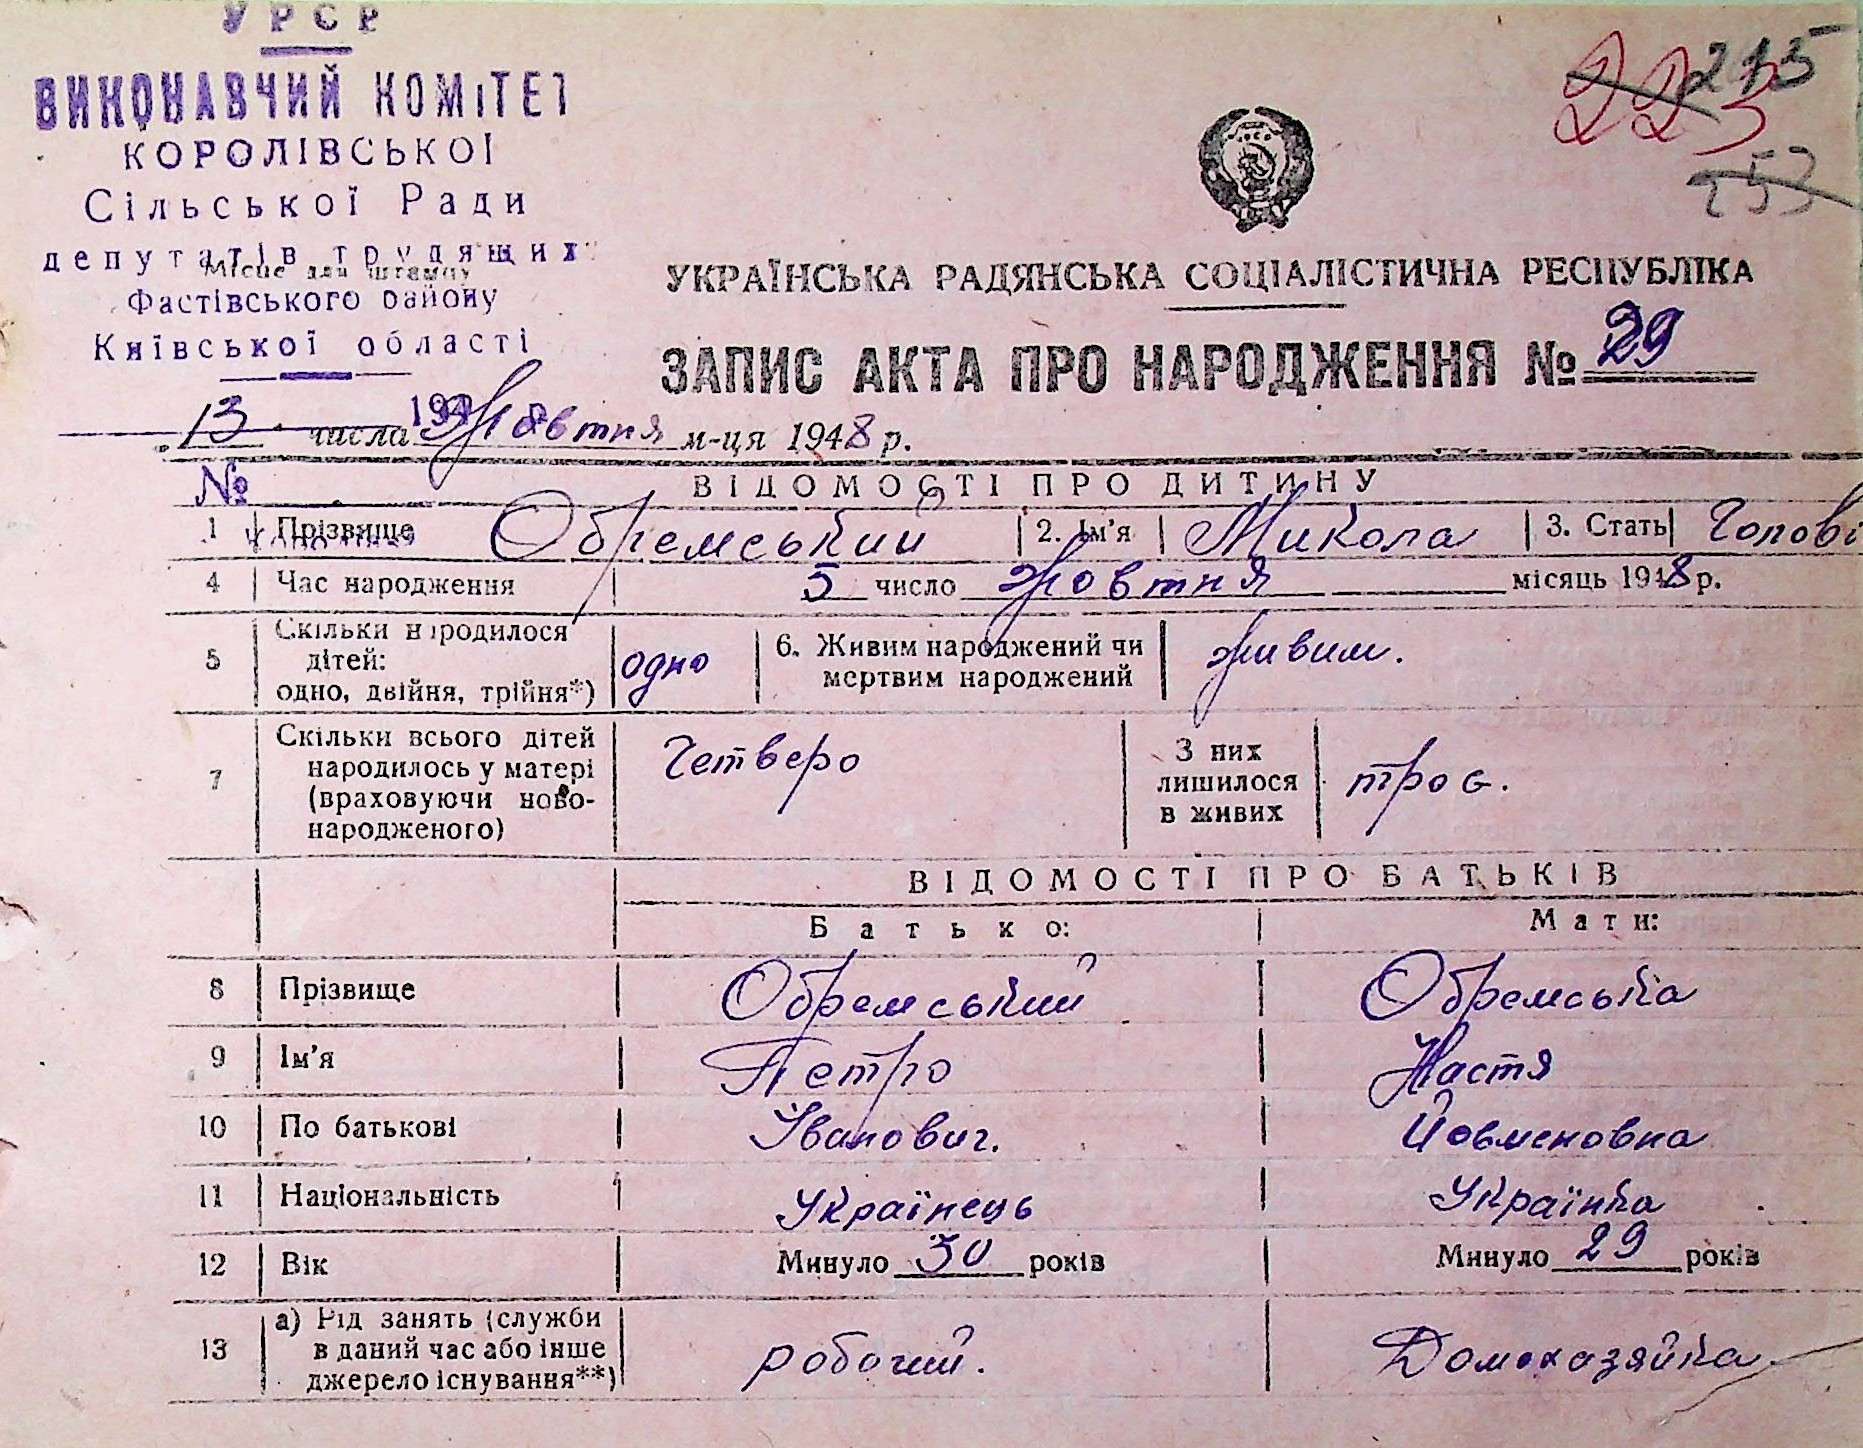 УРСР
ВИКОНАВЧИЙ КОМІТЕТ
КОРОЛІВСЬКОЇ
Сільської Ради
депутатів трудящих
Місце для штампу
Фастівського району
Київської області
223 215
253
УКРАЇНСЬКА РАДЯНСЬКА СОЦІАЛІСТИЧНА РЕСПУБЛІКА
ЗАПИС АКТА ПРО НАРОДЖЕННЯ № 29
13 числа Жовтня м-ця 1948 р.
№
ВІДОМОСТІ ПРО ДИТИНУ
1 Прізвище Обремський 2. Ім'я Микола 3. Стать Чолові
4 Час народження 5 число жовтня місяць 1948 р.
5 Скільки народилося дітей: одно, двійня, трійня*) одно 6. Живим народжений чи мертвим народжений живим.
7 Скільки всього дітей народилось у матері (враховуючи ново-народженого) Четверо З них лишилося в живих троє.
ВІДОМОСТІ ПРО БАТЬКІВ
Батько: Мати:
8 Прізвище Обремський Обремська
9 Ім'я Петро Настя
10 По батькові Іванович. Йовменовна
11 Національність Українець Українка
12 Вік Минуло 30 років Минуло 29 років
13 а) Рід занять (служби в даний час або інше джерело існування**) робочий. Домохазяйка